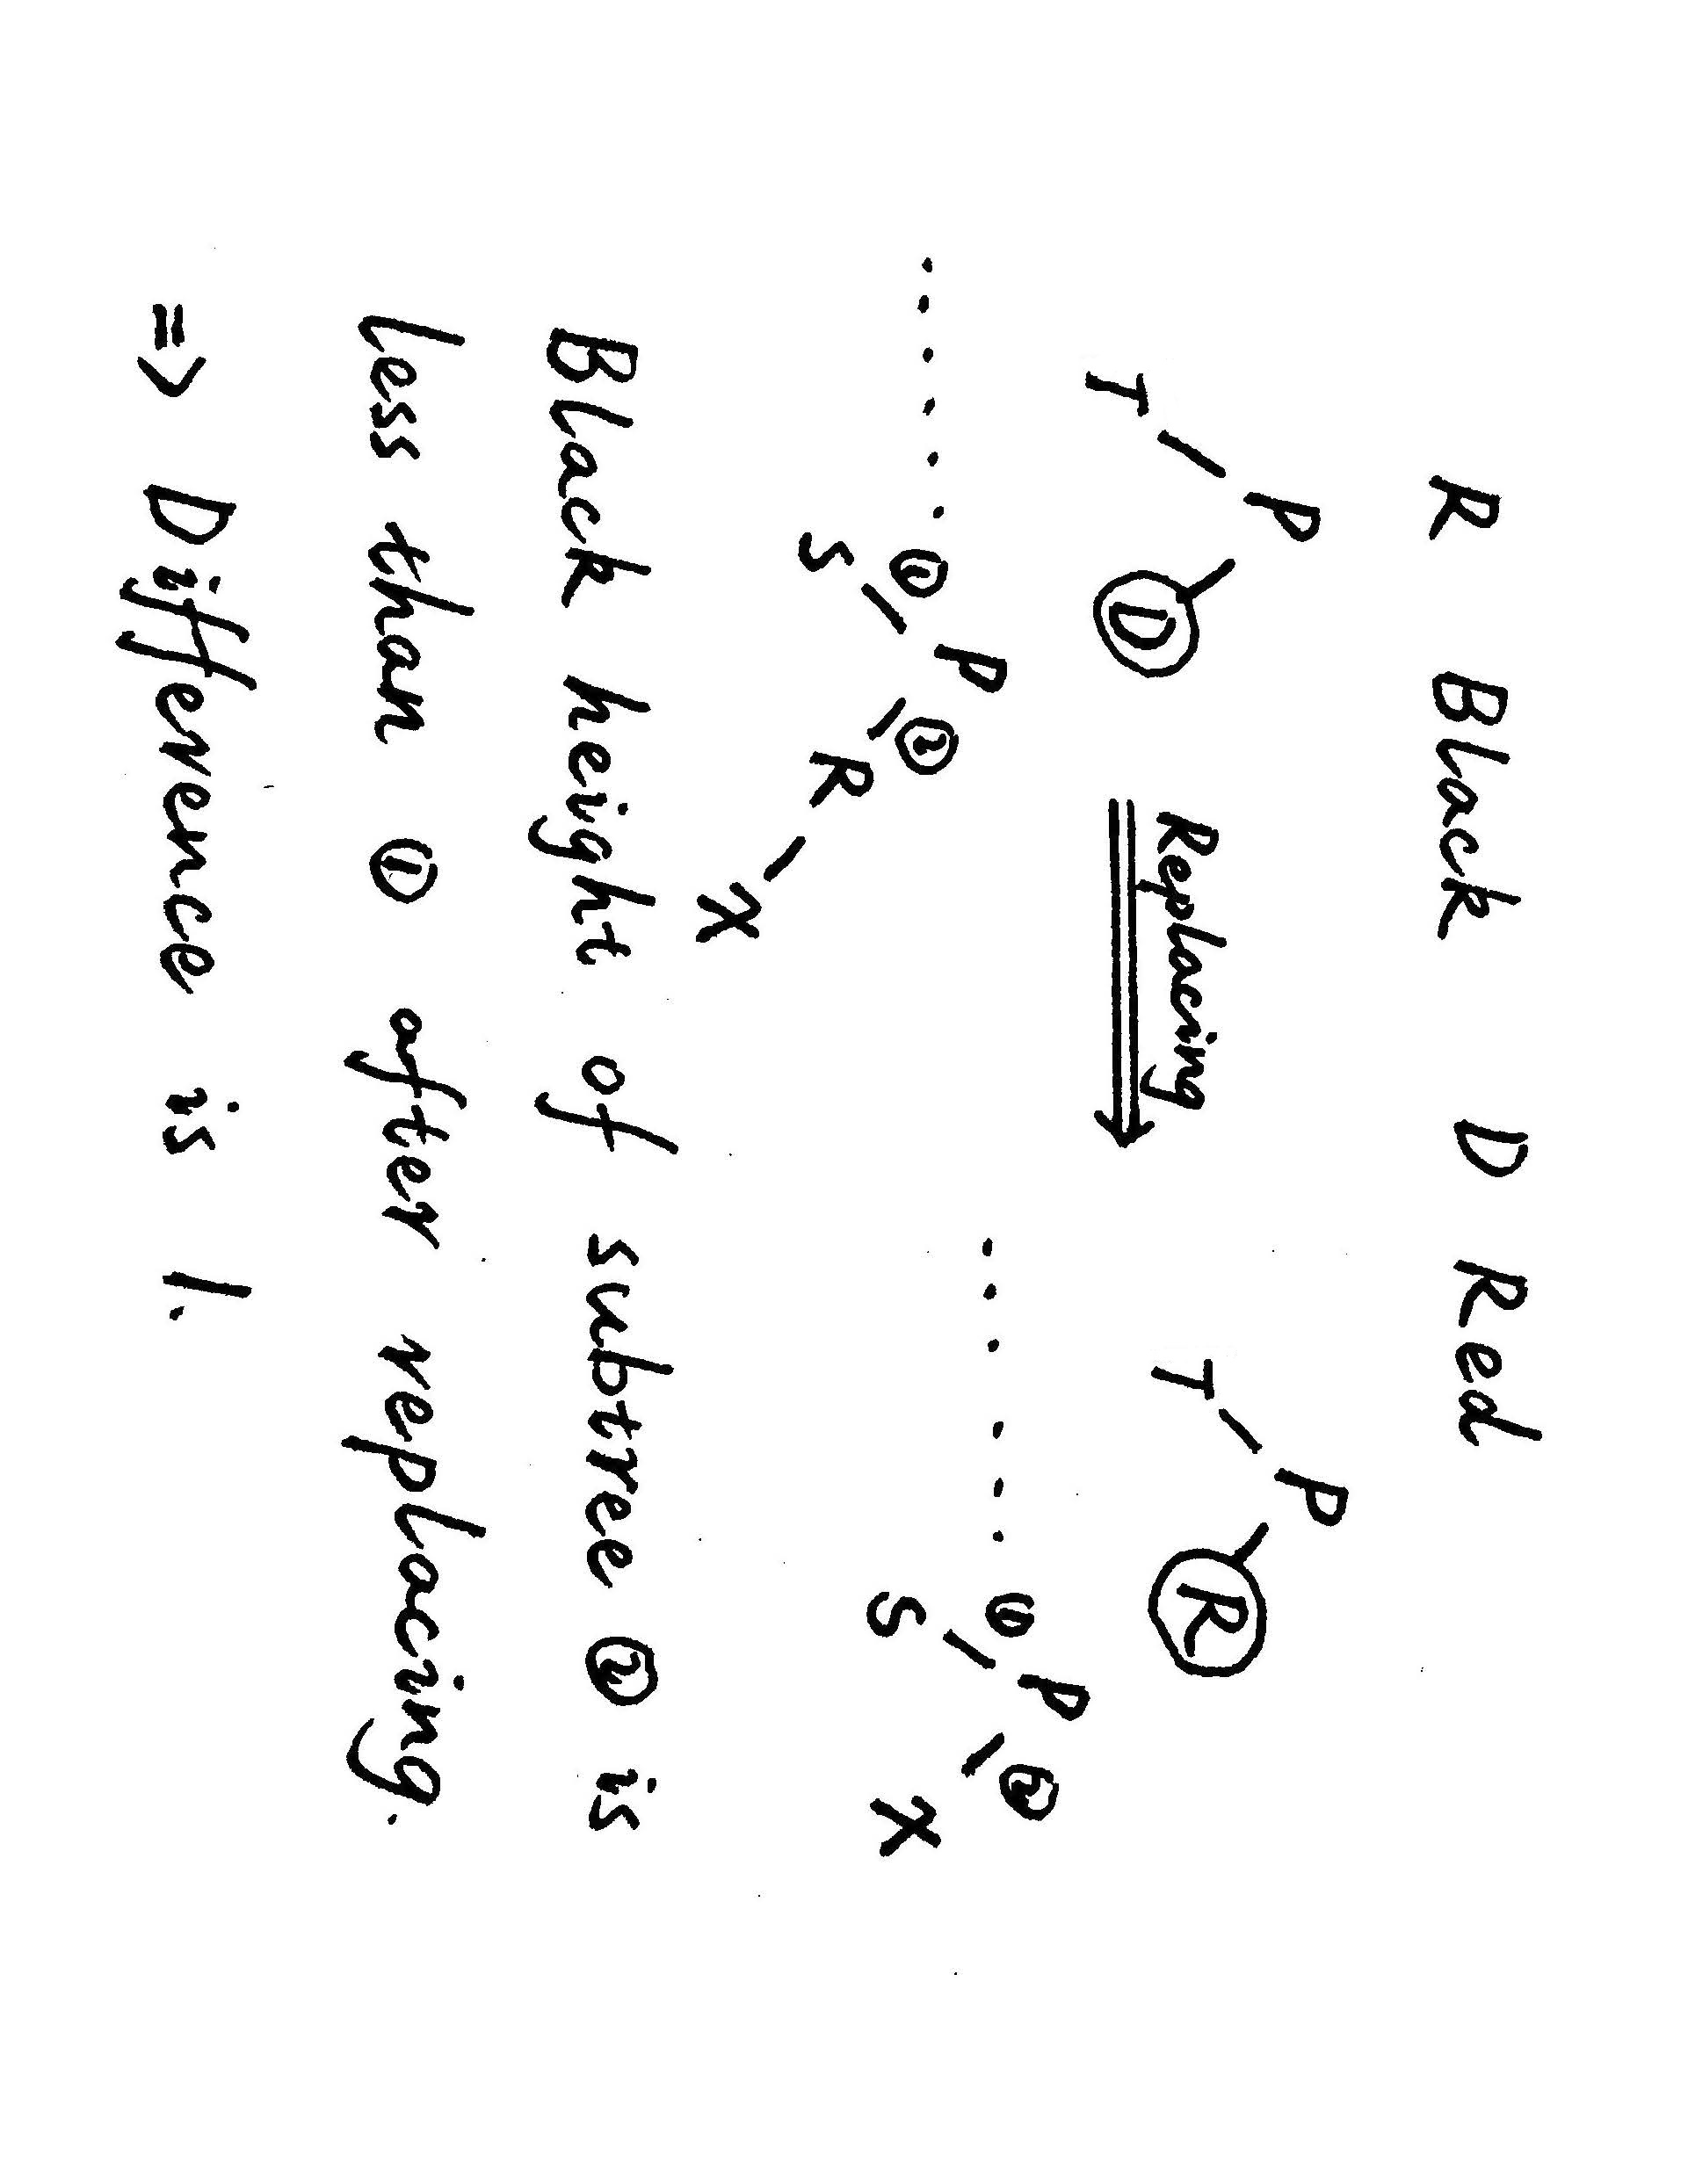 R Black D Red
P P
Replacing
T D T R
P P
① ② ① ②
S R S X
X
Black height of subtree ② is
less than ① after replacing.
=> Difference is 1.